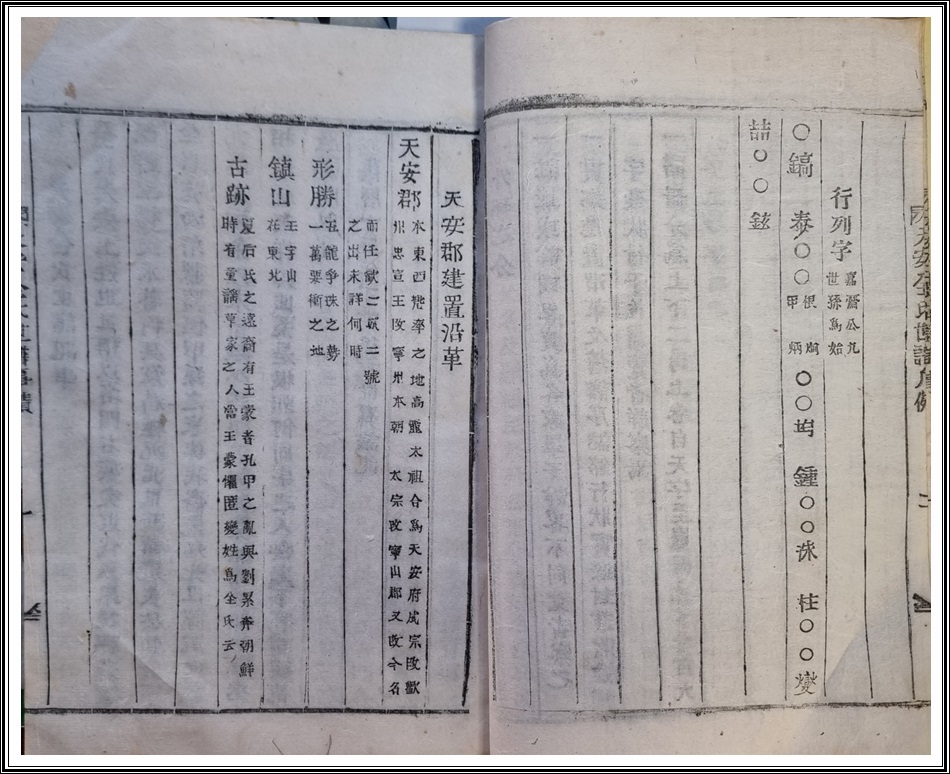 行列字
世孫爲始
○鎬 泰○○根 炯
甲 炳
○○均 鍾○○洙 柱○○燮
喆○○鉉
天安郡建置沿革
天安郡 本東西兜率之地高麗太祖合爲天安府成宗改歡
州忠宣王改寧州本朝 太宗改寧山郡又改今名
而任歡二二號
之出未詳何時
形勝 五龍爭珠之勢
一萬要衝之地
鎮山 王字山
在東北
古跡 夏后氏之遠裔有王蒙者孔甲之亂與劉累奔朝鮮
時有童謠草家之人當王蒙懼匿變姓爲全氏云